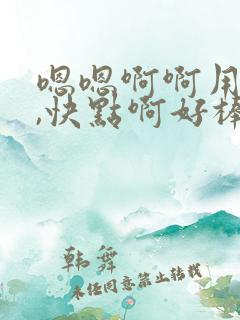 嗯嗯啊啊用
,快點啊好棒
韩舞
未经同意禁止转载